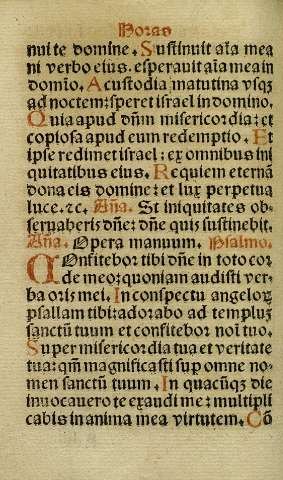 Horas
nui te domine. Sustinuit aĩa mea
ni verbo eius. esperauit aĩa mea in
domĩo. A custodia matutina vsqꝫ
ad noctem: speret israel in domino.
Quia apud dñm misericordia: et
copiosa apud eum redemptio. Et
ipse redimet israel: ex omnibus ini
quitatibus eius. Requiem eternã
dona eis domine: et lux perpetua
luce. ⁊c. Aña. St iniquitates ob-
seruaberis dñe: dñe quis sustinebit.
Aña. Opera manuum. Psalmo.
COnfitebor tibi dñe in toto cor
de meo: quoniam audisti ver-
ba oris mei. In conspectu angeloꝝ
psallam tibi: adorabo ad templuꝫ
sanctũ tuum et confitebor noĩ tuo.
Super misericordia tua et veritate
tua: qm̃ magnificasti sup omne no-
men sanctũ tuum. In quacũqꝫ die
inuocauero te exaudi me: multipli
cabis in anima mea virtutem. Cõ